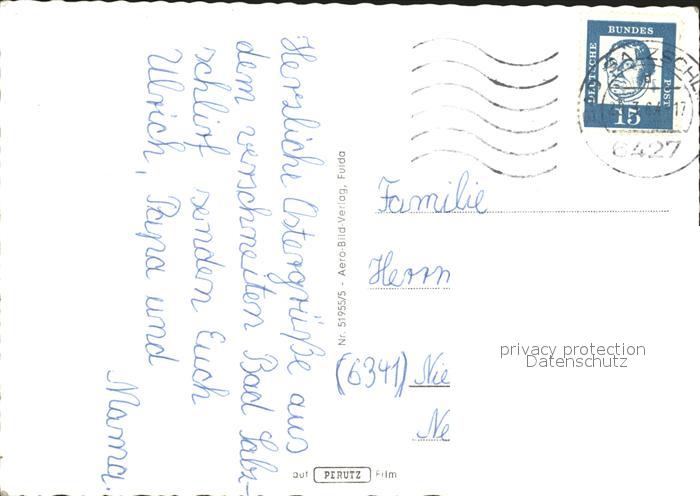 Herzliche Ostergrüße aus
dem verschneiten Bad Salz-
schlirf senden Euch
Ulrich, Papa und
Mama.
Nr. 51955/5 - Aero-Bild-Verlag, Fulda
DEUTSCHE
BUNDES
POST
15
6427
Familie
Herrn
(6341) Nie
Ne
privacy protection
Datenschutz
auf PERUTZ Film